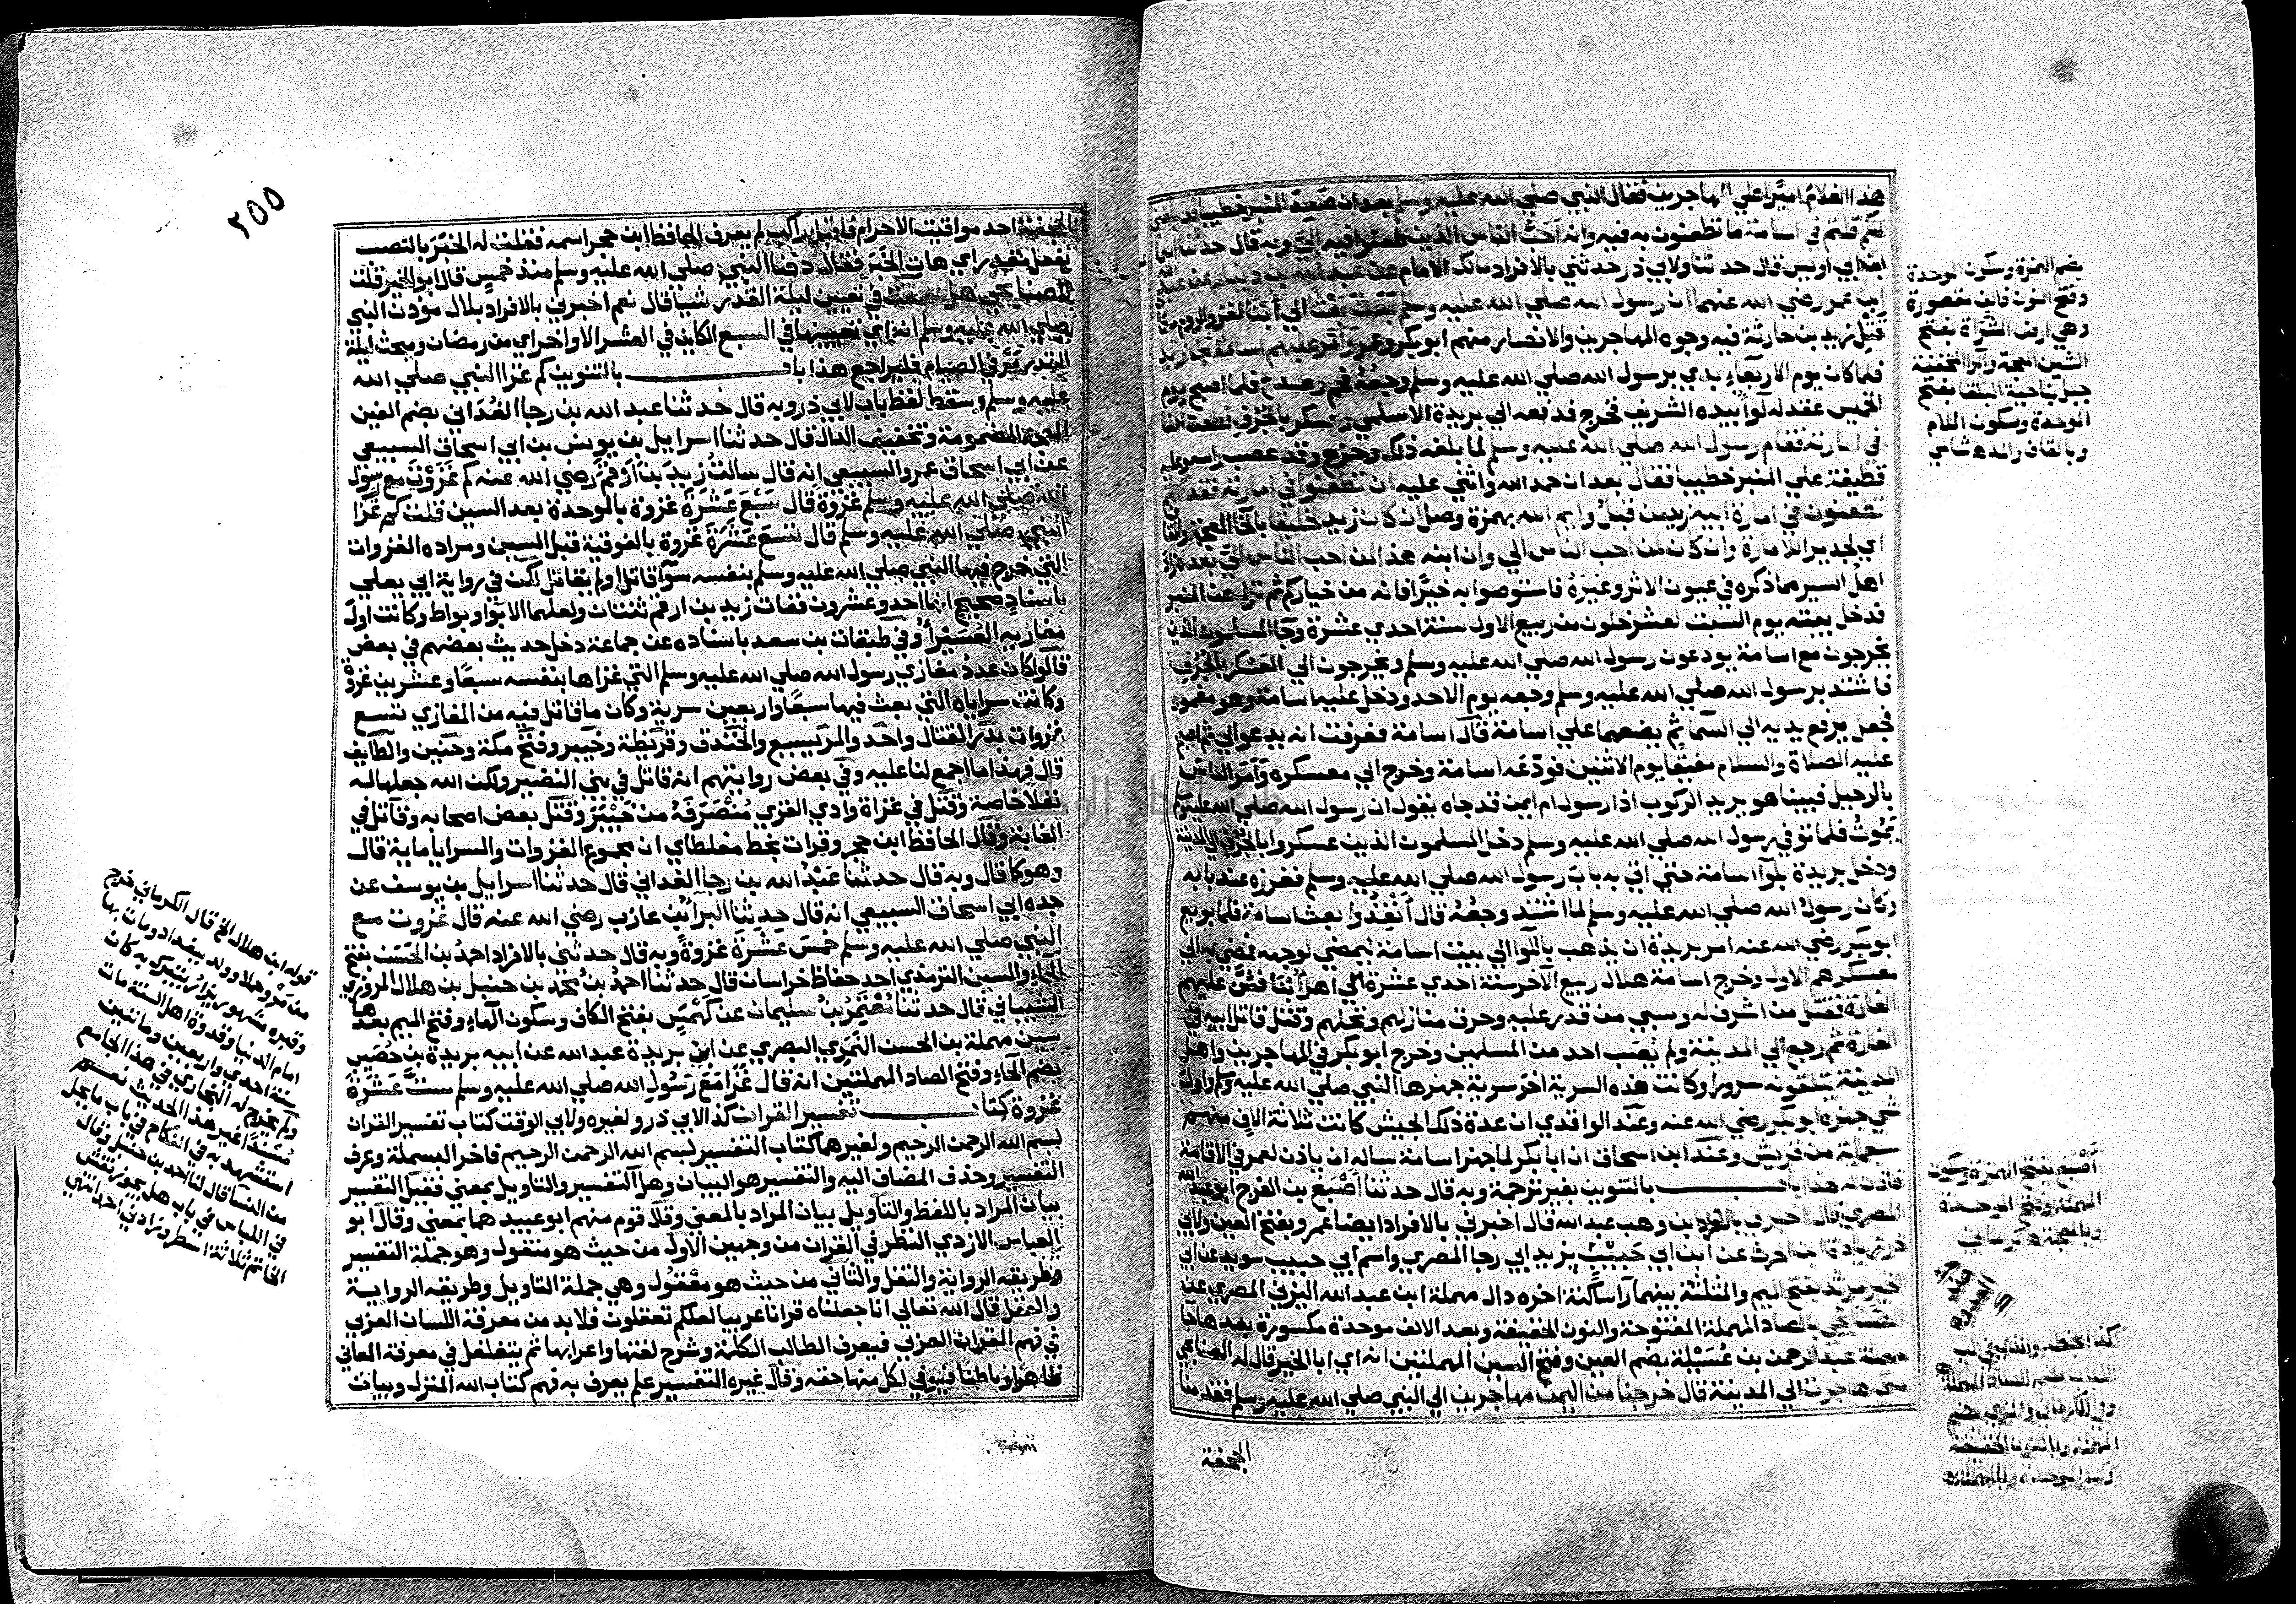 هذا الغلام اميرا علي المهاجرين فقال النبي صلي الله عليه وسلم بعد ان صعد المنبر خطيبا
قلتم في اسامة ما تطعنون به فيه وانه احب الناس الذين طعنوا فيه اليّ وبه قال حدثنا
ابن ابي اويس قال حدثنا ولابي ذر حدثني بالافراد مالك الامام عن عبد الله بن دينار عن عبد
ابن عمر رضي الله عنهما ان رسول الله صلي الله عليه وسلم بعث بعثا الي أبنا لغزو الروم
قتل زيد بن حارثة فيه وجوه المهاجرين والانصار منهم ابو بكر وعمر وأمّر عليهم اسامة بن زيد
فلما كان يوم الاربعاء بدي برسول الله صلي الله عليه وسلم وجعه فحم وصدع فلما اصبح يوم
الخميس عقد له لوآ بيده الشريف فخرج فدفعه الي بريدة الاسلمي وعسكر بالجرف فطعن الناس
في امارته فقام رسول الله صلي الله عليه وسلم لما بلغه ذلك وخرج وقد عصب راسه وعليه
قطيفة علي المنبر خطيبا فقال بعد ان حمد الله واثني عليه ان تطعنوا في امارته فقد كنتم
تطعنون في امارة ابيه زيد من قبل وايم الله بهمزة وصل ان كان زيد لخليقا بالخا المعجمة والقاف
اي لجدير اللامارة وان كان لمن احب الناس الي وان ابنه هذا لمن احب الناس اليّ بعده زاد
اهل السير مما ذكره في عيون الاثر وغيره فاستوصوا به خيرًا فانه من خياركم ثم نزل عن المنبر
فدخل بيته يوم السبت لعشر خلون من ربيع الاول سنة احدي عشرة وجآ المسلمون الذين
يخرجون مع اسامة يودعون رسول الله صلي الله عليه وسلم ويخرجون الي العسكر بالجرف
فاشتد برسول الله صلي الله عليه وسلم وجعه يوم الاحد ودخل عليه اسامة وهو مغمور
فجعل يرفع يديه الي السما ثم يضعهما علي اسامة قال اسامة فعرفت انه يدعو الي ثم اصبح
عليه الصلاة والسلام مفيقا يوم الاثنين فودّعه اسامة وخرج الي معسكره وأمر الناس
بالرحيل فبينا هو يريد الركوب اذا رسول ام ايمن قد جاه يقول ان رسول الله صلي الله عليه وسلم
يموتُ فلما توفي رسول الله صلي الله عليه وسلم دخل المسلمون الذين عسكروا بالجرف الي المدينة
ودخل بريدة بلوآ اسامة حتي اتي به باب رسول الله صلي الله عليه وسلم فغرزه عند بابه
وكان رسول الله صلي الله عليه وسلم لما اشتد وجعه قال أنفِذُوا بعث اسامة فلما بويع
ابو بكر رضي الله عنه امر بريدة ان يذهب باللوآ الي بيت اسامة ليمضي لوجهه فمضي به الي
معسكرهم الاول وخرج اسامة هلال ربيع الآخر سنة احدي عشرة الي اهل أبنا فشنّ عليهم
الغارة فقتل من اشرف له وسبي من قدر عليه وحرق منازلهم ونخلهم وقتل قاتل ابيه في
الغارة ثم رجع الي المدينة ولم يُصَب احد من المسلمين وخرج ابو بكر في المهاجرين واهل
المدينة يتلقونه سرورا وكانت هذه السرية اخر سرية جهزها النبي صلي الله عليه وسلم واول
شي جهزه ابو بكر رضي الله عنه وعند الواقدي ان عدة ذلك الجيش كانت ثلاثة الاف منهم
سبعماية من قريش وعند ابن اسحاق ان ابا بكر لما جهز اسامة ساله ان ياذن لعمر في الاقامة
فاذن له هذا باب بالتنوين بغير ترجمة وبه قال حدثنا أصبغ بن الفرج ابو عبد الله
المصري قال اخبرني بالافراد بن وهب عبد الله قال اخبرني بالافراد ايضا عمرو بفتح العين ولابي
ذر زيادة ابن الحرث عن ابن ابي حبيب يزيد ابي رجا المصري واسم ابي حبيب سويد عن ابي
الخير مرثد بفتح الميم والمثلثة بينهما رآ ساكنة اخره دال مهملة ابن عبد الله اليزني المصري عن
الصنابحي بالصاد المهملة المفتوحة والنون الخفيفة وبعد الالف موحدة مكسورة بعدها حا
مهملة عبد الرحمن بن عُسَيْلة بضم العين وفتح السين المهملتين انه اي ابا الخير قال له الصنابحي
متي هاجرت الي المدينة قال خرجنا من اليمن مهاجرين الي النبي صلي الله عليه وسلم فقدمنا
الجحفة
بضم الهمزة وسكون الموحدة
وفتح النون فالف مقصورة
وهي ارض الشراة بفتح
الشين المعجمة والرا المخففة
جبل بناحية البلقا بفتح
الموحدة وسكون اللام
وبالقاف والمد ه شامي
اصبغ بفتح الهمزة وسكون
المهملة وفتح الموحدة
وبالمعجمة ه كرماني
٢٥٥
الجحفة احد مواقيت الاحرام فاقبل راكب لم يعرف الحافظ ابن حجر اسمه فقلت له الخبرَ بالنصب
بفعل مقدر اي هات الخبر فقال دفنا النبي صلي الله عليه وسلم منذ خمس قال ابو الخير قلت
للصنابحي هل سمعت في تعيين ليلة القدر شيا قال نعم اخبرني بالافراد بلال موذن النبي
صلي الله عليه وسلم انه اي تعيينها في السبع الكاين في العشر الاواخر اي من رمضان ومبحث ليلة
القدر مرّ في الصيام فليراجع هذا باب بالتنوين كم غزا النبي صلي الله
عليه وسلم وسقط لفظ باب لابي ذر وبه قال حدثنا عبد الله بن رجا الغُدَاني بضم الغين
المعجمة المضمومة وتخفيف الدال قال حدثنا اسرايل بن يونس بن ابي اسحاق السبيعي
عن ابي اسحاق عمرو السبيعي انه قال سالت زيدَ بن أرقم رضي الله عنه كم غزَوْتَ مع رسول
الله صلي الله عليه وسلم غزوة قال سبعَ عَشْرَة غزوة بالموحدة بعد السين قلت كم غزا
النبي صلي الله عليه وسلم قال تسعَ عَشْرَة غزوة بالفوقية قبل السين ومراده الغزوات
التي خرج فيها النبي صلي الله عليه وسلم بنفسه سوآ قاتل او لم يقاتل لكن في رواية ابي يعلي
باسناد صحيح انها احد وعشرون ففات زيد بن ارقم ثنتان ولعلهما الابوا وبواط وكانت اول
مغازيه العُسَيْرا وفي طبقات بن سعد باسناده عن جماعة دخل حديث بعضهم في بعض
قالوا كان عدد مغازي رسول الله صلي الله عليه وسلم التي غزاها بنفسه سبعًا وعشرين غزوة
وكانت سراياه التي بعث فيها سبعًا واربعين سرية وكان ما قاتل فيه من المغازي تسع
غزوات بدر القتال واحد والمريسيع والخندق وقريظة وخيبر وفتح مكة وحنين والطايف
قال فهذا ما اجمع لنا عليه وفي بعض رواياتهم انه قاتل في بني النضير ولكن الله جعلها له
نفلا خاصة وقتل في غزاة وادي القري مُنصَرَفَهُ من خيبر وقتل بعض اصحابه وقاتل في
الغابة وقال الحافظ ابن حجر وقرات بخط مغلطاي ان مجموع الغزوات والسرايا ماية قال
وهو كما قال وبه قال حدثنا عبدُ الله بن رجا الغداني قال حدثنا اسرايل بن يوسف عن
جده ابي اسحاق السبيعي انه قال حدثنا البرآ بن عازب رضي الله عنه قال غزوت مع
النبي صلي الله عليه وسلم خمسَ عَشْرَةَ غزوةً وبه قال حدثني بالافراد احمدُ بن الحَسَن بفتح
الحاء والسين الترمذي احد حفاظ خراسان قال حدثنا احمدُ بنُ محمد بن حنبل بن هلال المروزي
الشيباني قال حدثنا مُعْتَمِرُ بنُ سليمان عن كَهْمَسٍ بفتح الكاف وسكون الهاء وفتح الميم بعدها
سين مهملة بن الحسن النَّمَري البصري عن ابن بريدة عبد الله عن ابيه بريدة بن حُصَيب
بضم الحاء وفتح الصاد المهملتين انه قال غزا مَعَ رسُول الله صلي الله عليه وسلم ستَّ عَشْرَةَ
غزوة كتاب تفسير القران كذا لابي ذر ولغيره ولابي الوقت كتاب تفسير القران
بسم الله الرحمن الرحيم ولغيرهما كتاب التفسير بسم الله الرحمن الرحيم فاخر البسملة وعرف
التفسير وحذف المضاف اليه والتفسير هو البيان وهل التفسير والتاويل بمعني فقيل التفسير
بيان المراد باللفظ والتاويل بيان المراد بالمعني وقال قوم منهم ابو عبيد هما بمعني وقال ابو
العباس الازدي النظر في القران من وجهين الاول من حيث هو منقول وهو جملة التفسير
وطريقه الرواية والنقل والثاني من حيث هو معقول وهي جملة التاويل وطريقه الرواية
والعقل قال الله تعالي انا جعلناه قرانا عربيا لعلكم تعقلون فلابد من معرفة اللسان العربي
في فهم القران العربي فيعرف الطالب الكلمة وشرح لغتها واعرابها ثم يتغلغل في معرفة المعاني
ظاهرا وباطنا فيوفي لكل منها حقه وقال غيره التفسير علم يعرف به فهم كتاب الله المنزل وبيان
قوله ابن هلال الخ قال الكرماني خرج
من مرو حملا وولد ببغداد ومات بها
وقبره مشهور يزار يتبرك به كان
امام الدنيا وقدوة اهل السنة مات
سنة احدي واربعين وماتين
ولم يخرج له البخاري في هذا الجامع
مسندا غير هذا الحديث نعم
استشهد به في النكاح في باب ما يحل
من النسا قال لنا احمد بن حنبل وقال
في اللباس في باب هل يجوز نقش
الخاتم ثلاثة اسطر وزادني احمد انتهي